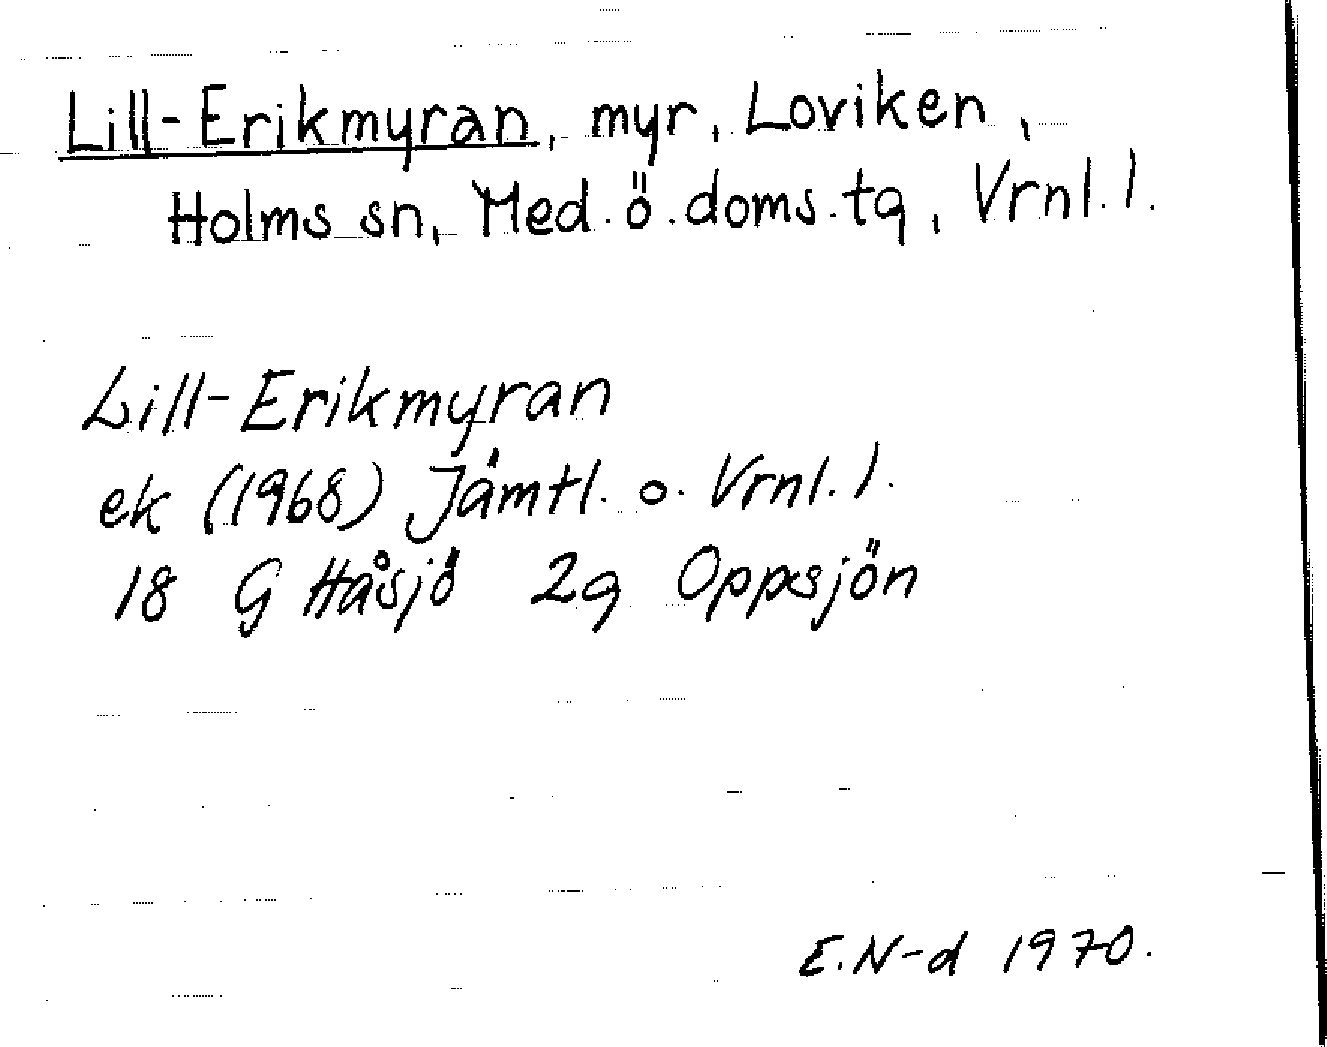 Lill-Erikmyran, myr, Loviken,
Holms sn, Med. ö. doms. tg, Vrnl. l.
Lill-Erikmyran
ek (1968) Jämtl. o. Vrnl. l.
18 G Håsjö 2g Oppsjön
E. N-d 1970.